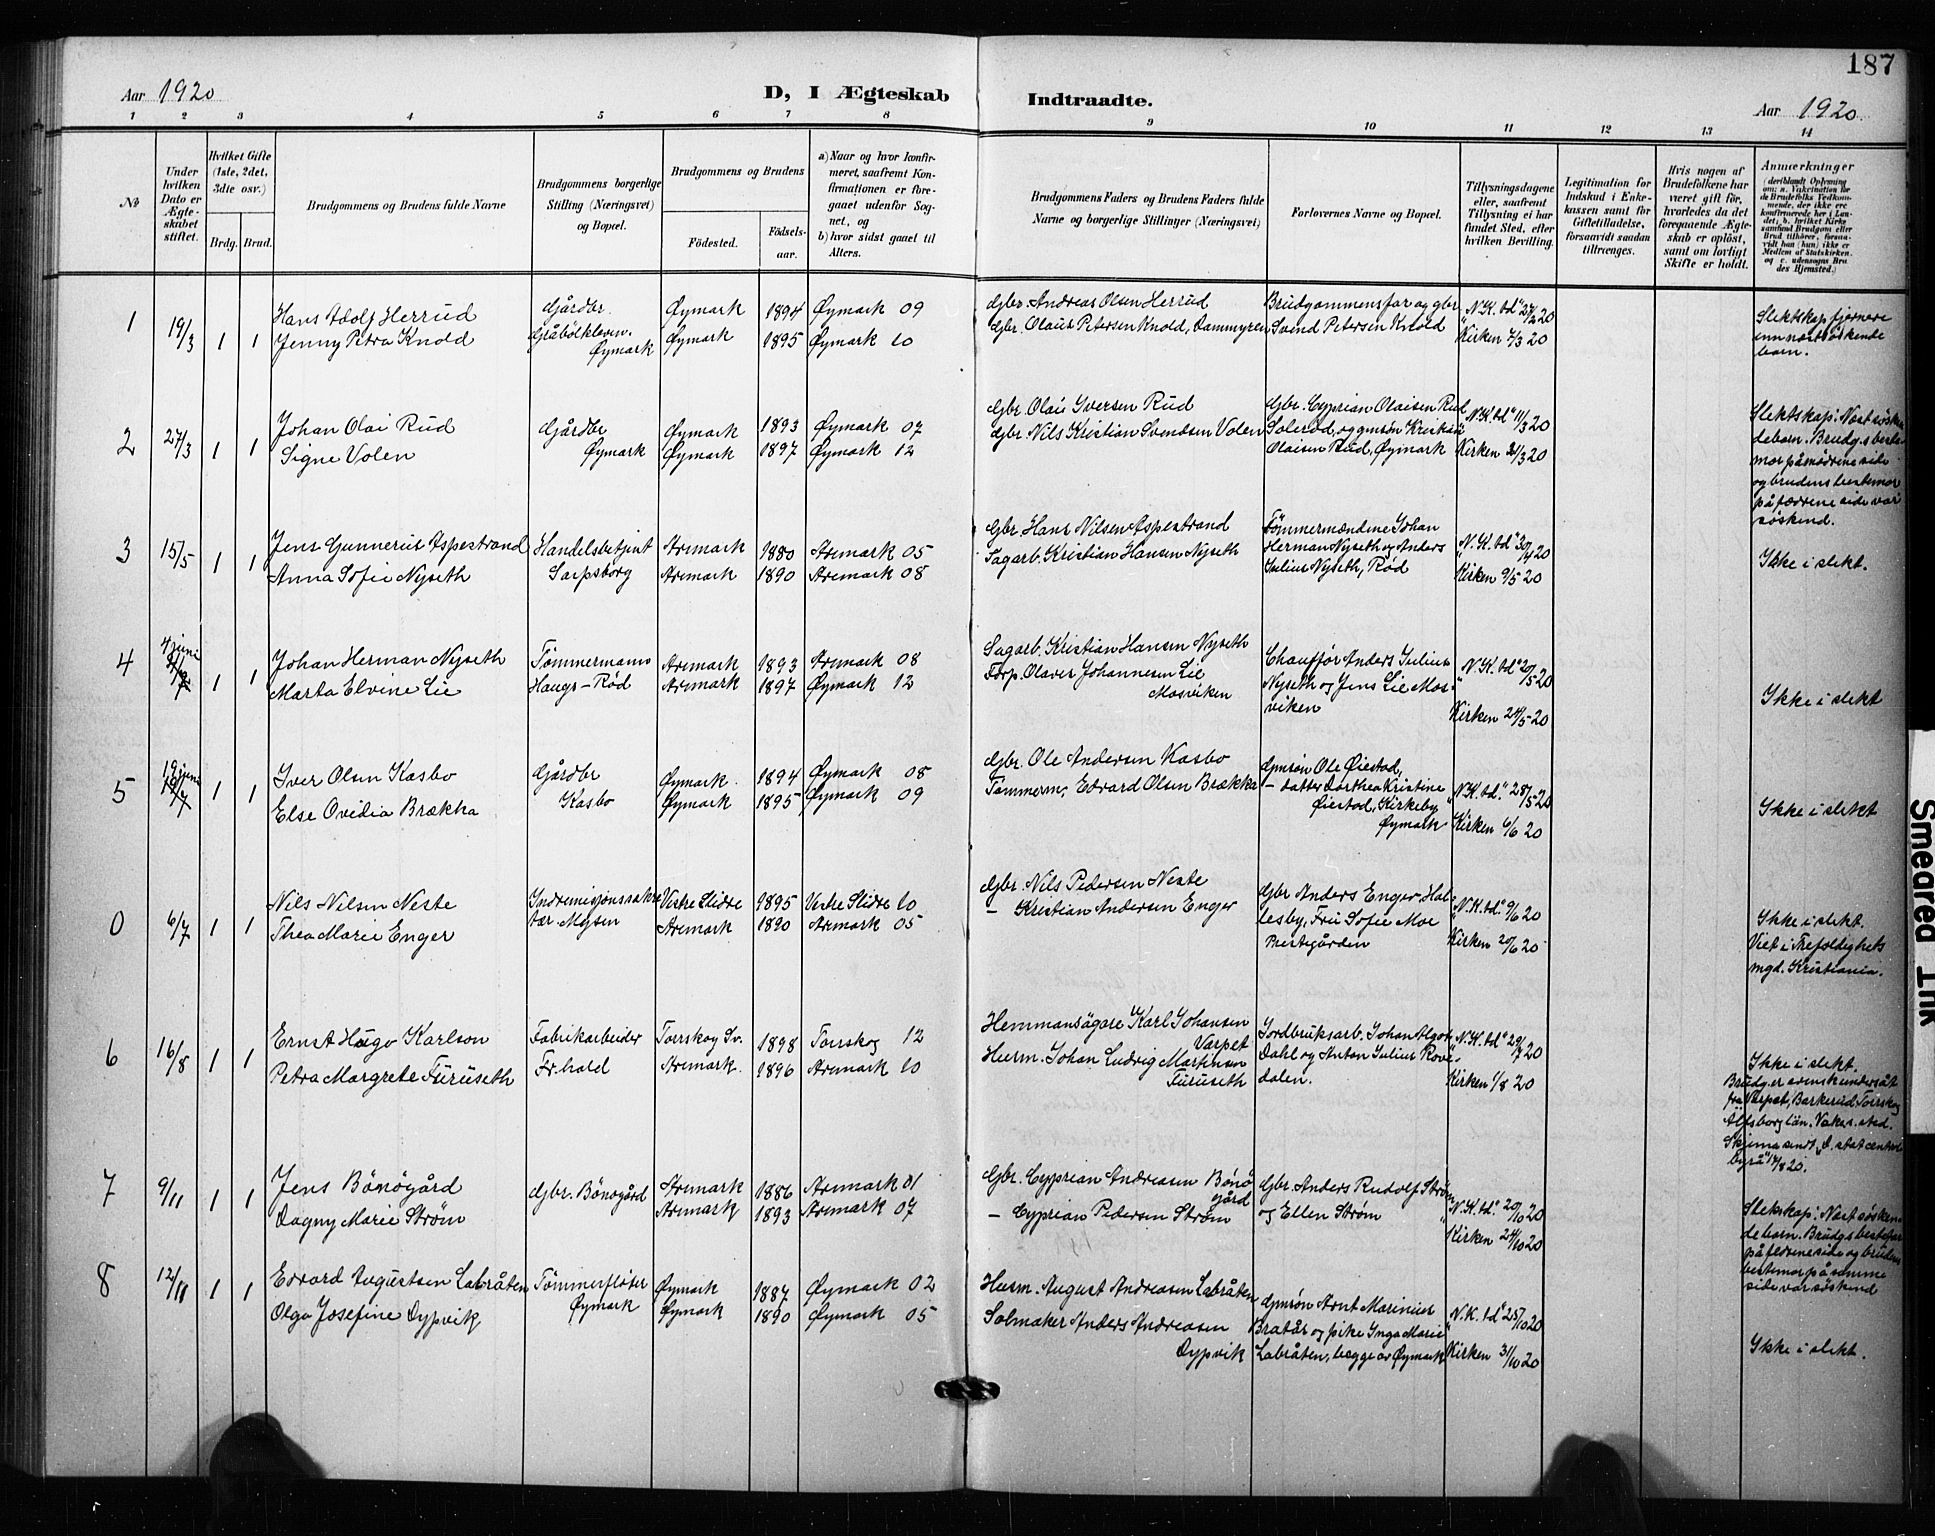 187
Aar 1920
D, I Ægteskab
Indtraadte.
Aar 1920
1 2 3 4 5 6 7 8 9 10 11 12 13 14
No
Under hvilken Dato er Ægteskabet stiftet.
Hvilket Gifte (1ste, 2det, 3die osv.)
Brdg. Brud.
Brudgommens og Brudens fulde Navne
Brudgommens borgerlige Stilling (Næringsvei) og Bopæl.
Brudgommens og Brudens
Fødested.
Fødselsaar.
a) Naar og hvor konfirmeret, saafremt Konfirmationen er foregaaet udenfor Sognet, og
b) hvor sidst gaaet til Alters.
Brudgommens Faders og Brudens Faders fulde Navne og borgerlige Stillinger (Næringsvei)
Forlovernes Navne og Bopæl.
Tillysningsdagene eller, saafremt Tillysning ei har fundet Sted, efter hvilken Bevilling.
Legitimation for Indskud i Enkekassen samt for Giftetilladelse, forsaavidt saadan tiltrænges.
Hvis nogen af Brudefolkene har været gift før, hvorledes da det foregaaende Ægteskab er opløst, samt om lovligt Skifte er holdt.
Anmærkninger
(deriblandt Oplysning om: a. Vakcination for de Brudefolks Vedkommende, der ikke ere konfirmerede her i Landet; b. hvilket Kirkesamfund Brudgom eller Brud tilhører, forsaavidt han (hun) ikke er Medlem af Statskirken, og c. udensogns Brudes Hjemsted.)
1 19/3 1 1
Hans Adolf Herrud
Jenny Petra Knold
Gårdbr.
Gråbölkleven.
Øymark
Øymark 1894 Øymark 09
Øymark 1895 Øymark 10
Gbr. Andreas Olsen Herrud
Gbr. Olaus Petersen Knold, Dammyren
Brudgommens far og gbr
Svend Petersen Knold
"N.K. bd" 27/2 20
Kirken 7/3 20
Slektskap fjernere
enn næstsöskende
barn.
2 27/3 1 1
Johan Olai Rud
Signe Volen
Gårdbr
Øymark
Øymark 1893 Øymark 07
Øymark 1897 Øymark 12
Gbr. Olai Iversen Rud
Gbr. Nils Kristian Svendsen Volen
Gbr. Cyprian Olaisen Rud
Solerød, og gmsøn Kristian
Olaisen Rud, Øymark
"N.K. bd" 11/3 20
Kirken 21/3 20
Slektskap: Næstsösken
debarn. Brudgs beste-
mor på mødrene side
og brudens bestemor
på fædrene side var
söskend.
3 15/5 1 1
Jens Gunnerius Aspestrand
Anna Sofie Nyseth
Handelsbetjent
Sarpsborg
Aremark 1880 Aremark 05
Aremark 1890 Aremark 08
Gbr. Hans Nilsen Aspestrand
Sagarb. Kristian Hansen Nyseth
Tømmermændene Johan
Herman Nyseth og Anders
Julius Nyseth, Rød
"N.K. bd" 30/4 20
Kirken 9/5 20
Ikke i slekt.
4 4 juni 1 1
Johan Herman Nyseth
Marta Elvine Lie
Tømmermann
Haugs-Rød
Aremark 1893 Aremark 08
Aremark 1897 Øymark 12
Sagarb. Kristian Hansen Nyseth
Forp. Olaves Johannesen Lie
Mosviken
Chauffør Anders Julius
Nyseth og Jens Lie Mos-
viken
"N.K. bd" 20/5 20
Kirken 24/5 20
Ikke i slekt
5 19 juni 1 1
Iver Olsen Kasbo
Else Ovidia Brækka
Gårdbr
Kasbo
Øymark 1894 Øymark 08
Øymark 1895 Øymark 09
Gbr. Ole Andersen Kasbo
Tømmerm. Edvard Olsen Brækka
Gmsøn Ole Øiestad,
– datter Dorthea Kristine
Øiestad, Kirkeby
Øymark
"N.K. bd." 28/5 20
Kirken 6/6 20
Ikke i slekt
0 6/7 1 1
Nils Nilsen Neste
Thea Marie Enger
Indremisjonssekre
tær. Mysen
Vestre Slidre 1895 Vestre Slidre 10
Aremark 1890 Aremark 05
Gbr. Nils Pedersen Neste
– Kristian Andersen Enger
Gbr Anders Enger Hal-
lesby, Fru Sofie Moe
Prestegården
"N.K. bd." 9/6 20
Kirken 20/6 20
Ikke i slekt.
Viet i Trefoldighets
mgd. Kristiania.
6 16/8 1 1
Ernst Hugo Karlson
Petra Margrete Furuseth
Fabrikarbeider
Fr.hald
Torrskog Sv. 1898 Torrskog 12
Aremark 1896 Aremark 10
Hemmansägare Karl Johansen
Varpet
Husm. Johan Ludvig Martinsen
Furuseth
Jordbruksarb. Johan Algot
Dahl og Anton Julius Rove-
dalen.
"N.K. bd" 29/7 20
Kirken 1/8 20
Ikke i slekt.
Brudg. er svensk undersåt
fra Varpet, Barkerud, Torrskog
Älfsborg län. Vaks. sted.
Skjema sendt D. stat. central
byrå 17/8 20.
7 9/11 1 1
Jens Bönögård
Dagny Marie Strøm
Gbr. Bönögård
Aremark 1886 Aremark 01
Aremark 1893 Aremark 07
Gbr. Cyprian Andreasen Bönö
gård
– Cyprian Pedersen Strøm
Gbr. Anders Rudolf Strøm
og Ellen Strøm
"N.K. bd." 20/10 20
Kirken 24/10 20
Slekskap: Næstsösken
debarn. Brudgs bestefar
på fedrene side og brudens
bestemor på samme
side var söskend
8 12/11 1 1
Edvard Augustsen Labråten
Olga Josefine Dypvik
Tömmerfløter
Øymark
Øymark 1887 Øymark 02
Øymark 1890 Øymark 05
Husm. August Andreasen Labråten
Salmaker Anders Andreasen
Dypvik
Gmsøn Arnt Marinius
Bratås og pike Inga Marie
Labråten, begge av Øymark
"N.K. bd" 25/10 20
Kirken 31/10 20
Ikke i slekt.
Smeared Ink